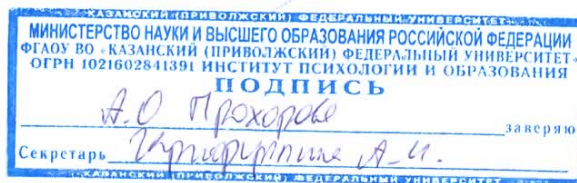 КАЗАНСКИЙ (ПРИВОЛЖСКИЙ) ФЕДЕРАЛЬНЫЙ УНИВЕРСИТЕТ
МИНИСТЕРСТВО НАУКИ И ВЫСШЕГО ОБРАЗОВАНИЯ РОССИЙСКОЙ ФЕДЕРАЦИИ
ФГАОУ ВО «КАЗАНСКИЙ (ПРИВОЛЖСКИЙ) ФЕДЕРАЛЬНЫЙ УНИВЕРСИТЕТ»
ОГРН 1021602841391 ИНСТИТУТ ПСИХОЛОГИИ И ОБРАЗОВАНИЯ
ПОДПИСЬ
А.О Прохорова
заверяю
Секретарь А.И.
КАЗАНСКИЙ (ПРИВОЛЖСКИЙ) ФЕДЕРАЛЬНЫЙ УНИВЕРСИТЕТ